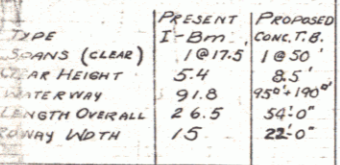 PRESENT PROPOSED
TYPE I-Bm. CONC. T.B.
SPANS (CLEAR) 1@17.5 1@50'
CLEAR HEIGHT 5.4 8.5'
WATERWAY 91.8 95°'+190°'
LENGTH OVERALL 26.5 54'-0"
RDWAY WDTH 15 22'-0"